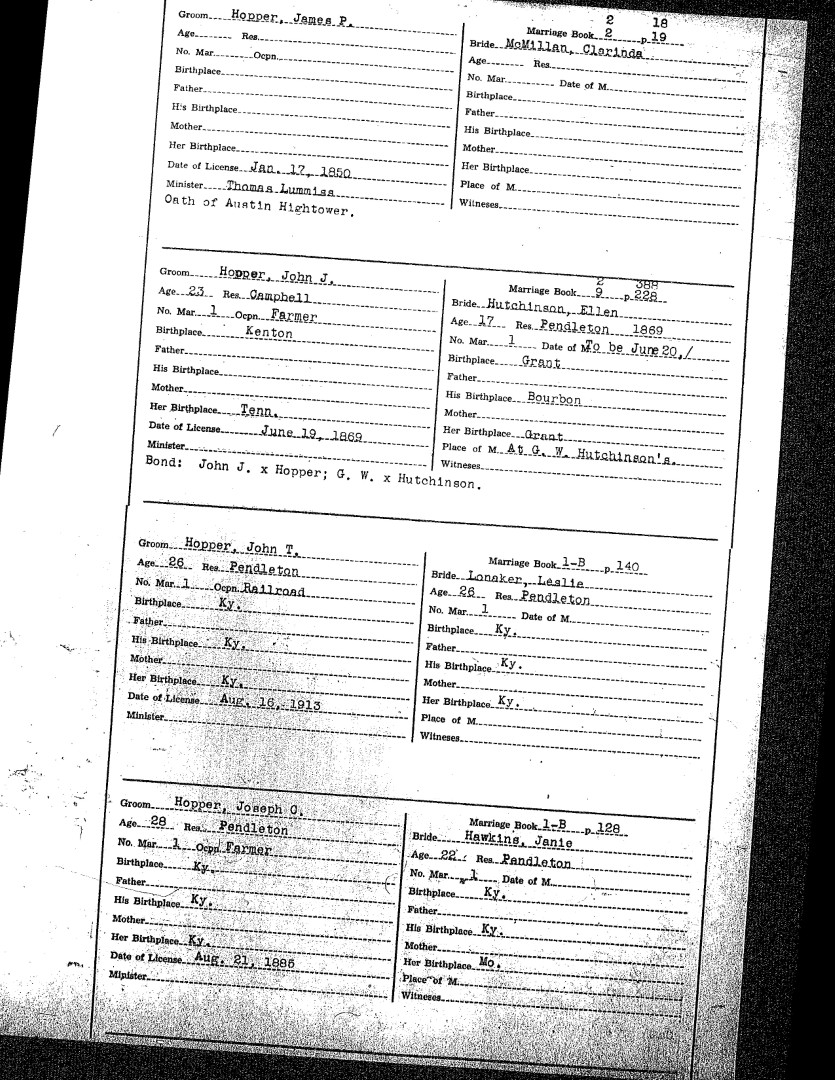 Groom Hopper, James P.
Age Res.
No. Mar. Ocpn.
Birthplace
Father
His Birthplace
Mother
Her Birthplace
Date of License Jan. 17, 1850
Minister Thomas Lummiss
Oath of Austin Hightower.
2 18
Marriage Book 2 p 19
Bride McMillan, Clarinda
Age Res.
No. Mar. Date of M.
Birthplace
Father
His Birthplace
Mother
Her Birthplace
Place of M.
Witneses
Groom Hopper, John J.
Age 23 Res. Campbell
No. Mar. 1 Ocpn. Farmer
Birthplace Kenton
Father
His Birthplace
Mother
Her Birthplace Tenn.
Date of License June 19, 1869
Minister
Bond: John J. x Hopper; G. W. x Hutchinson.
2 388
Marriage Book 9 p 228
Bride Hutchinson, Ellen
Age 17 Res. Pendleton 1869
No. Mar. 1 Date of M. To be June 20,/
Birthplace Grant
Father
His Birthplace Bourbon
Mother
Her Birthplace Grant
Place of M. At G. W. Hutchinson's.
Witneses
Groom Hopper, John T.
Age 26 Res. Pendleton
No. Mar. 1 Ocpn. Railroad
Birthplace Ky.
Father
His Birthplace Ky.
Mother
Her Birthplace Ky.
Date of License Aug. 16, 1913
Minister
Marriage Book 1-B p 140
Bride Lonaker, Leslie
Age 26 Res. Pendleton
No. Mar. 1 Date of M.
Birthplace Ky.
Father
His Birthplace Ky.
Mother
Her Birthplace Ky.
Place of M.
Witneses
Groom Hopper, Joseph C.
Age 28 Res. Pendleton
No. Mar. 1 Ocpn. Farmer
Birthplace Ky.
Father
His Birthplace Ky.
Mother
Her Birthplace Ky.
Date of License Aug. 21, 1886
Minister
Marriage Book 1-B p 128
Bride Hawkins, Janie
Age 22 Res. Pendleton
No. Mar. 1 Date of M.
Birthplace Ky.
Father
His Birthplace Ky.
Mother
Her Birthplace Mo.
Place of M.
Witneses